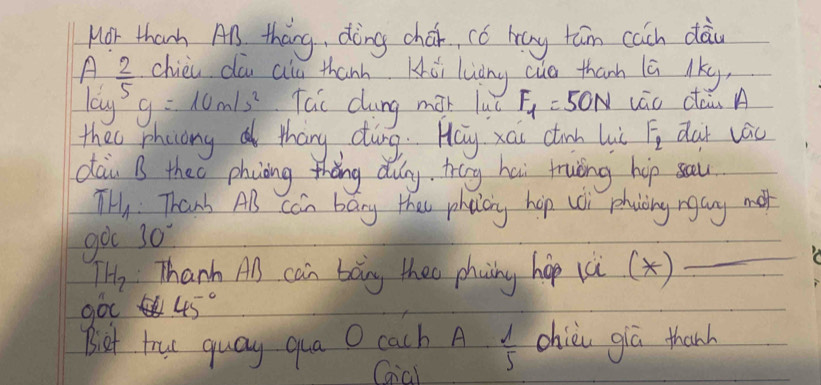 Một thanh AB thẳng, đồng chất, có trọng tâm cách đầu
A 2/5 chiều dài của thanh. Khối lượng của thanh là 1kg,
lấy g = 10m/s². Tác dụng một lực F₁ = 50N vào đầu A
theo phương thẳng đứng. Hãy xác định lực F₂ đặt vào
đầu B theo phương thẳng đứng. trong hai trường hợp sau
TH₁: Thanh AB cân bằng theo phương hợp với phương ngang một
góc 30°
TH₂: Thanh AB cân bằng theo phương hợp với (*)
góc 45°
Biết trục quay qua O cách A 1/5 chiều giã thanh
Giải